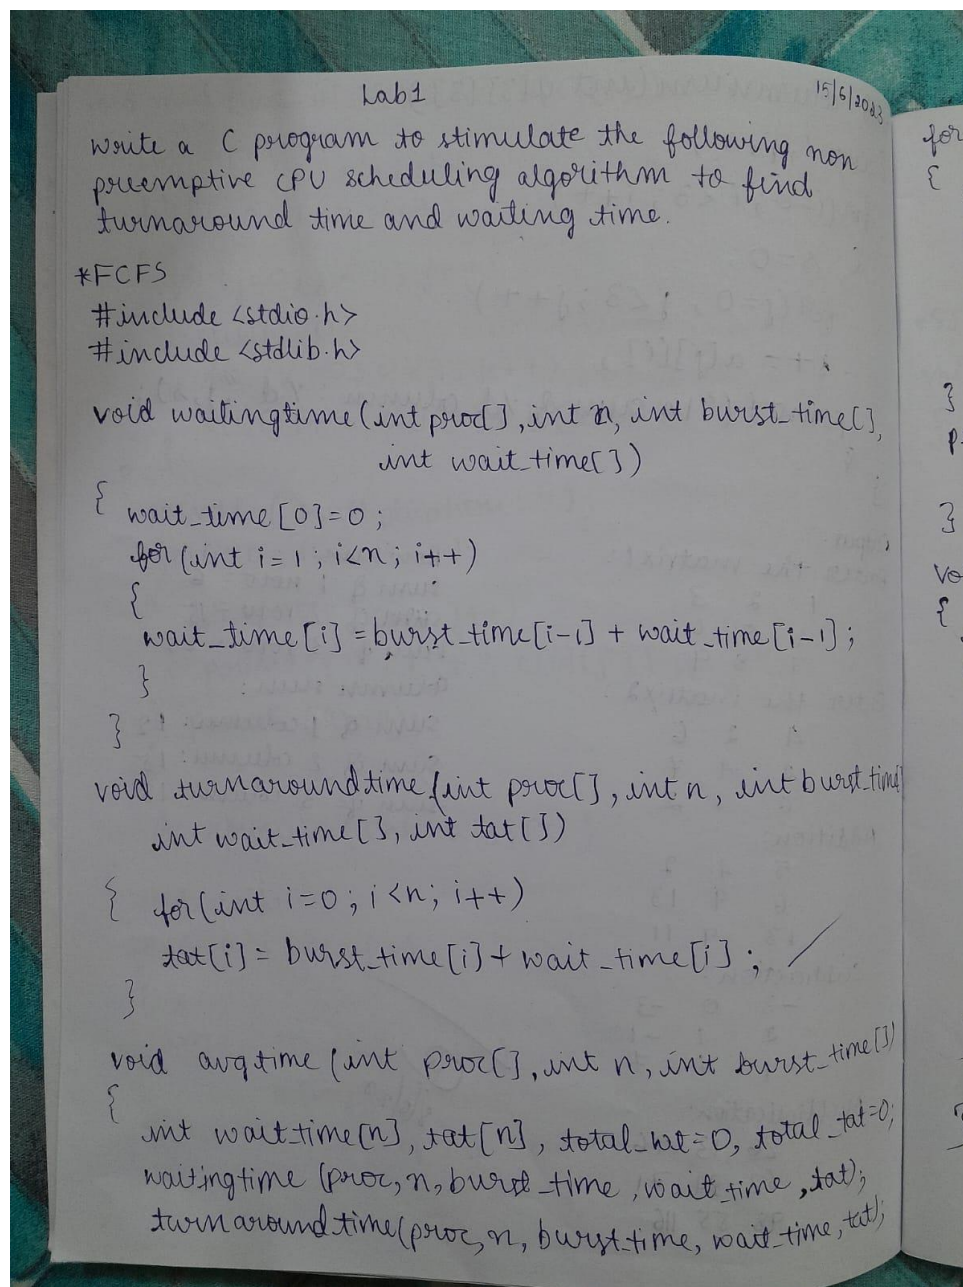 Lab1
15/6/2023
write a C program to stimulate the following non
preemptive CPU scheduling algorithm to find
turnaround time and waiting time.
*FCFS
#include <stdio.h>
#include <stdlib.h>
void waitingtime(int proc[], int n, int burst_time[],
int wait_time[])
{
wait_time[0]=0;
for(int i=1; i<n; i++)
{
wait_time[i] = burst_time[i-1] + wait_time[i-1];
}
}
void turnaroundtime(int proc[], int n, int burst_time[]
int wait_time[], int tat[])
{ for(int i=0; i<n; i++)
tat[i] = burst_time[i] + wait_time[i];
}
void avgtime (int proc[], int n, int burst_time[])
{
int wait_time[n], tat[n], total_wt=0, total_tat=0;
waitingtime (proc, n, burst_time, wait_time, tat);
turnaroundtime(proc, n, burst_time, wait_time, tat);
for
{
}
p
}
vo
{